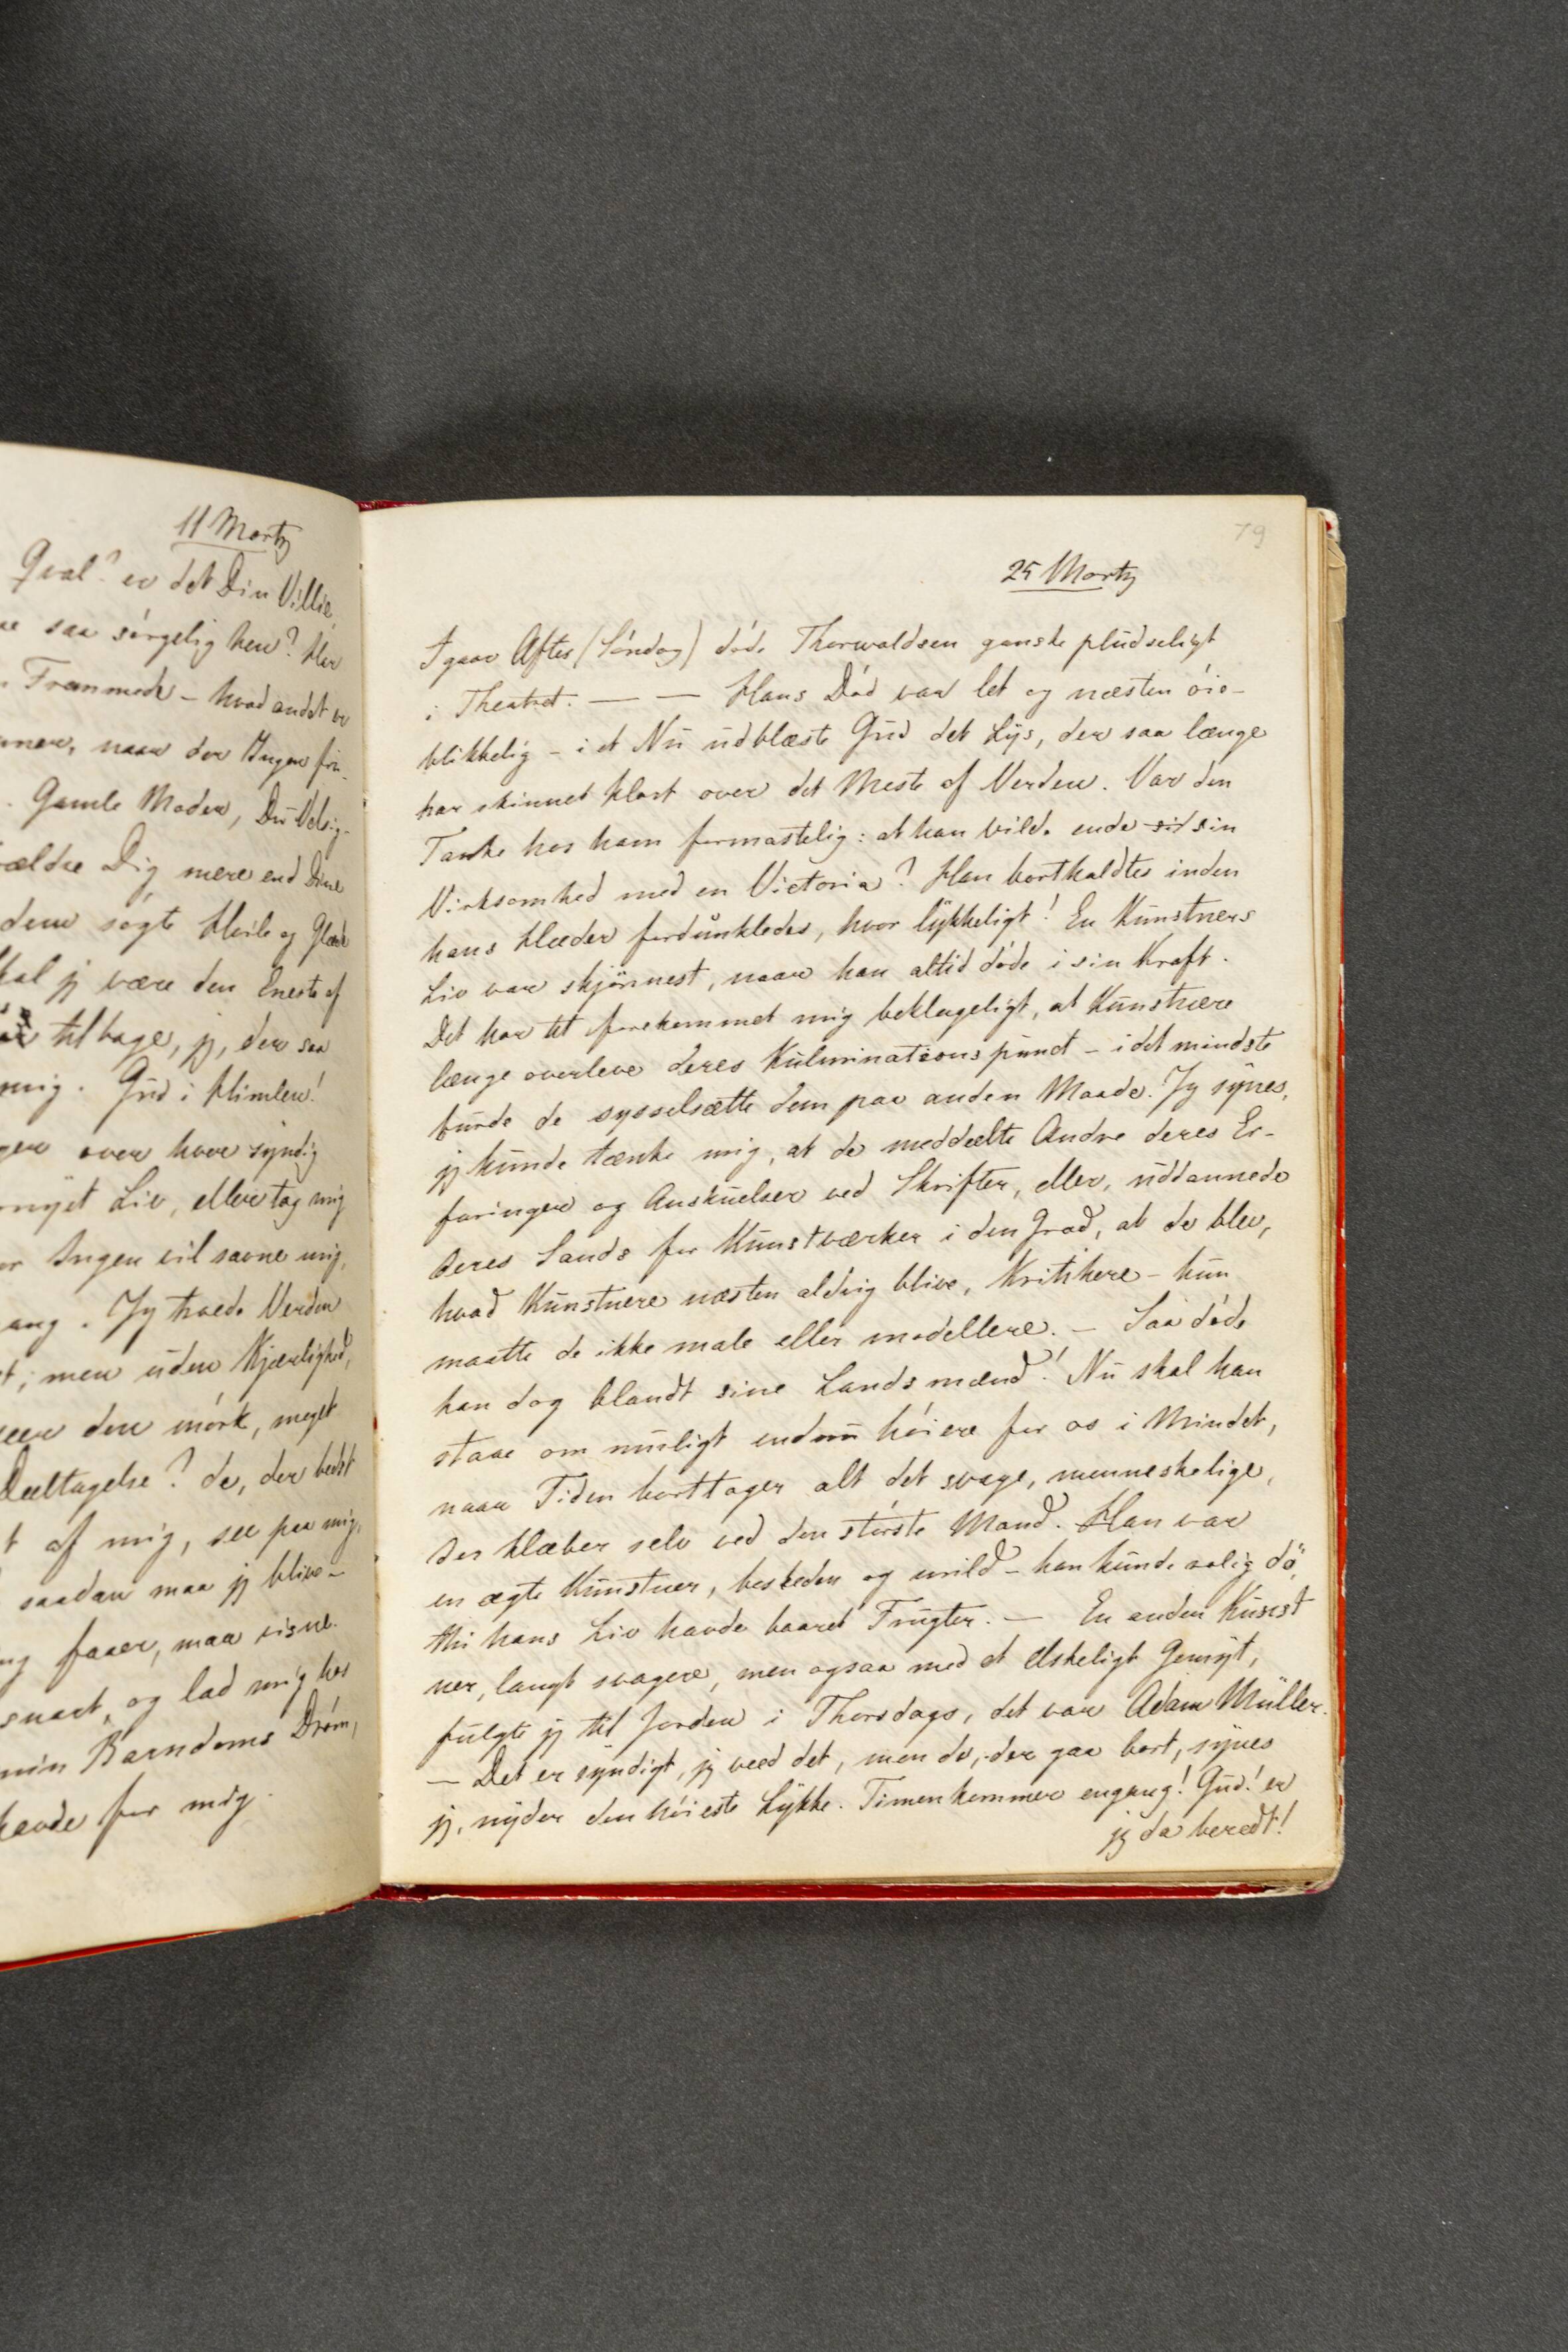 11 Martz
Qval? er det Din Villie,
saa sörgelig hen? Her
Fremmede – hvad andet er
naar der Ingen fin-
. Gamle Moder, Du Velsig-
ældre Dig mere end Dine
dem søgte Hvile og Glæde
jeg være den Eneste af
tilbage, jeg, der saa
mig. Gud i Himlen!
over hver syndig
nyet Liv, eller tag mig
Ingen vil savne mig,
ang. Jeg troede Verden
t; men uden Kjærlighed,
den mörk, meget
Deeltagelse? de, der bedst
t af mig, see paa mig,
saadan maa jeg blive –
faaer, maa visne.
snart, og lad mig hos
min Barndoms Dröm,
havde for mig.
79
25 Martz
Igaar Aftes (Söndag) döde Thorwaldsen ganske pludseligt
i Theatret. — — Hans Död var let og næsten öie-
blikkelig – i et Nu udblæste Gud det Lys, der saa længe
har skinnet klart over det Meste af Verden. Var den
Tanke hos ham formastelig: at han vilde ende sit sin
Virksomhed med en Victoria? Han bortkaldtes inden
hans Hæder fordunkledes, hvor lykkeligt! En Kunstners
Liv var skjönnest, naar han altid döde i sin Kraft.
Det har tit forekommet mig beklageligt, at Kunstnere
længe overleve deres Kulminationspunct – i det mindste
burde de sysselsætte dem paa anden Maade. Jeg synes,
jeg kunde tænke mig, at de meddeelte Andre deres Er-
faringer og Anskuelser ved Skrifter, eller, uddannede
deres Sands for Kunstværker i den Grad, at de blev,
hvad Kunstnere næsten aldrig blive, Kritikere – kun
maatte de ikke male eller modellere. – Saa döde
han dog blandt sine Landsmænd! Nu skal han
staae om muligt endnu höiere for os i Mindet,
naar Tiden borttager alt det svage, menneskelige,
der klæber selv ved den störste Mand. Han var
en ægte Kunstner, beskeden og mild – han kunde rolig dö,
thi hans Liv havde baaret Frugter. — En anden Kunst
ner, langt svagere, men ogsaa med et elskeligt Gemyt,
fulgte jeg til Jorden i Thorsdags, det var Adam Müller.
— Det er syndigt, jeg veed det, men de, der gaa bort, synes
jeg, nyder den höieste Lykke. Timen kommer engang! Gud! er
jeg da beredt!